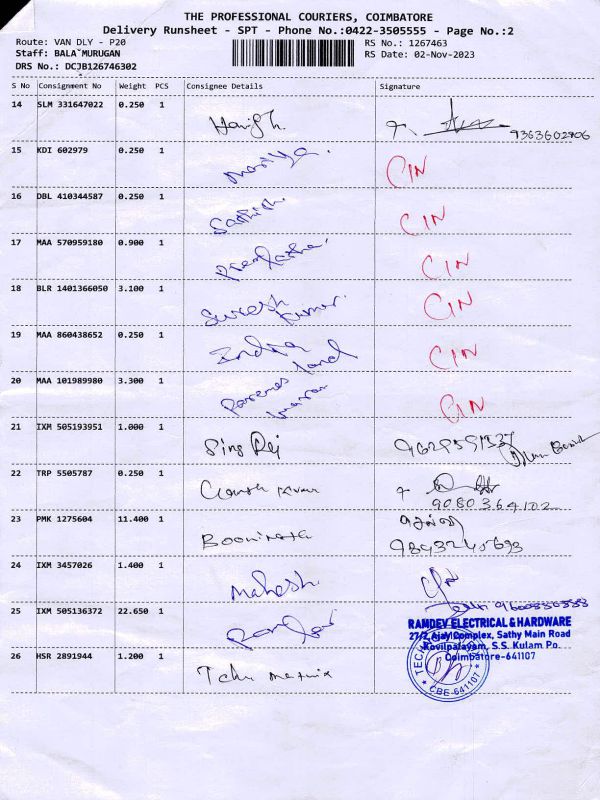 THE PROFESSIONAL COURIERS, COIMBATORE
Delivery Runsheet - SPT - Phone No.:0422-3505555 - Page No.:2
Route: VAN DLY - P20
RS No.: 1267463
Staff: BALA MURUGAN
RS Date: 02-Nov-2023
DRS No.: DCJB126746302
S No Consignment No Weight PCS Consignee Details Signature
14 SLM 331647022 0.250 1 Harish
9363602906
15 KDI 602979 0.250 1 CIN
16 DBL 410344587 0.250 1 Sathish. CIN
17 MAA 570959180 0.900 1 CIN
18 BLR 1401366050 3.100 1 Suresh Kumar. CIN
19 MAA 860438652 0.250 1 India land CIN
20 MAA 101989980 3.300 1 CIN
21 IXM 505193951 1.000 1
22 TRP 5505787 0.250 1
9080364102
23 PMK 1275604 11.400 1
24 IXM 3457026 1.400 1 Mahesh.
25 IXM 505136372 22.650 1
RAMDEV ELECTRICAL & HARDWARE
27/2, Ajay Complex, Sathy Main Road
Kovilpalayam, S.S. Kulam Po.
Coimbatore-641107
26 HSR 2891944 1.200 1
CBE-641107